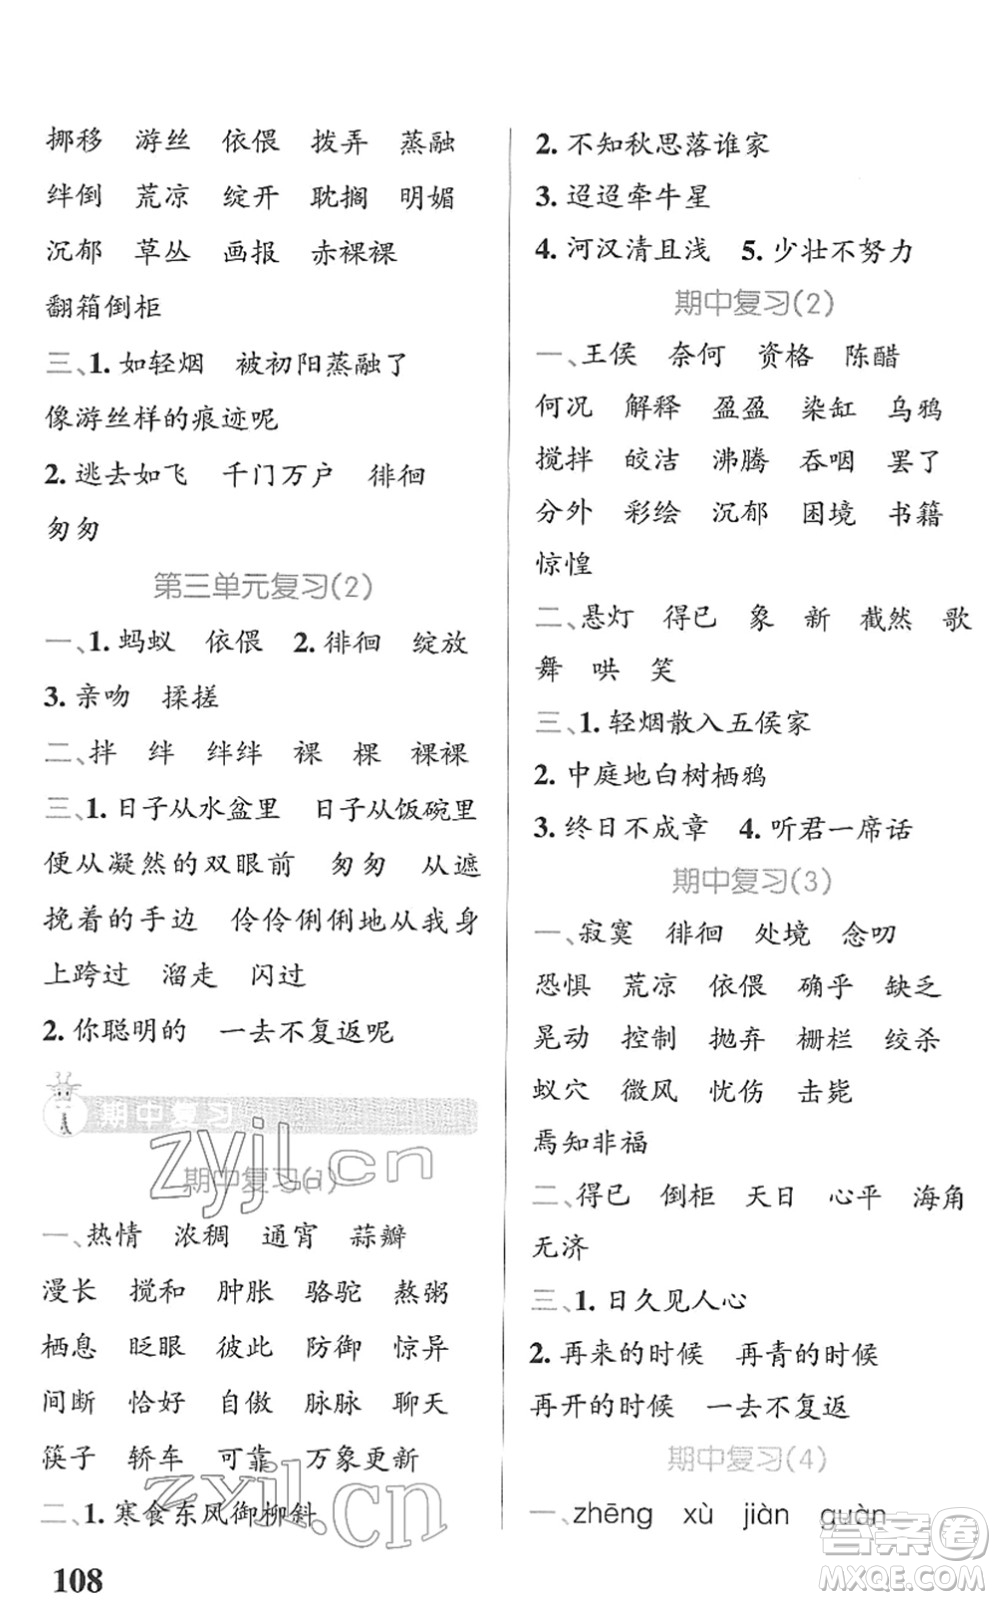 挪移　游丝　依偎　拨弄　蒸融
绊倒　荒凉　绽开　耽搁　明媚
沉郁　草丛　画报　赤裸裸
翻箱倒柜
三、1. 如轻烟　被初阳蒸融了
像游丝样的痕迹呢
2. 逃去如飞　千门万户　徘徊
匆匆
第三单元复习(2)
一、1. 蚂蚁　依偎　2. 徘徊　绽放
3. 亲吻　揉搓
二、拌　绊　绊绊　裸　棵　裸裸
三、1. 日子从水盆里　日子从饭碗里
便从凝然的双眼前　匆匆　从遮
挽着的手边　伶伶俐俐地从我身
上跨过　溜走　闪过
2. 你聪明的　一去不复返呢
期中复习
期中复习(1)
一、热情　浓稠　通宵　蒜瓣
漫长　搅和　肿胀　骆驼　熬粥
栖息　眨眼　彼此　防御　惊异
间断　恰好　自傲　脉脉　元宵
筷子　轿车　可靠　万象更新
二、1. 寒食东风御柳斜
108
2. 不知秋思落谁家
3. 迢迢牵牛星
4. 河汉清且浅　5. 少壮不努力
期中复习(2)
一、王侯　奈何　资格　陈醋
何况　解释　盈盈　染缸　乌鸦
搅拌　皎洁　沸腾　吞咽　罢了
分外　彩绘　沉郁　困境　书籍
惊惶
二、悬灯　得已　象　新　截然　歌
舞　哄　笑
三、1. 轻烟散入五侯家
2. 中庭地白树栖鸦
3. 终日不成章　4. 听君一席话
期中复习(3)
一、寂寞　徘徊　处境　念叨
恐惧　荒凉　依偎　确乎　缺乏
晃动　控制　抛弃　栅栏　绞杀
蚁穴　微风　忧伤　击毙
焉知非福
二、得已　倒柜　天日　心平　海角
无济
三、1. 日久见人心
2. 再来的时候　再青的时候
再开的时候　一去不复返
期中复习(4)
一、zhēng　xù　jiàn　quàn
zyjl.cn
zyjl.cn
答案卷
MXQE.COM